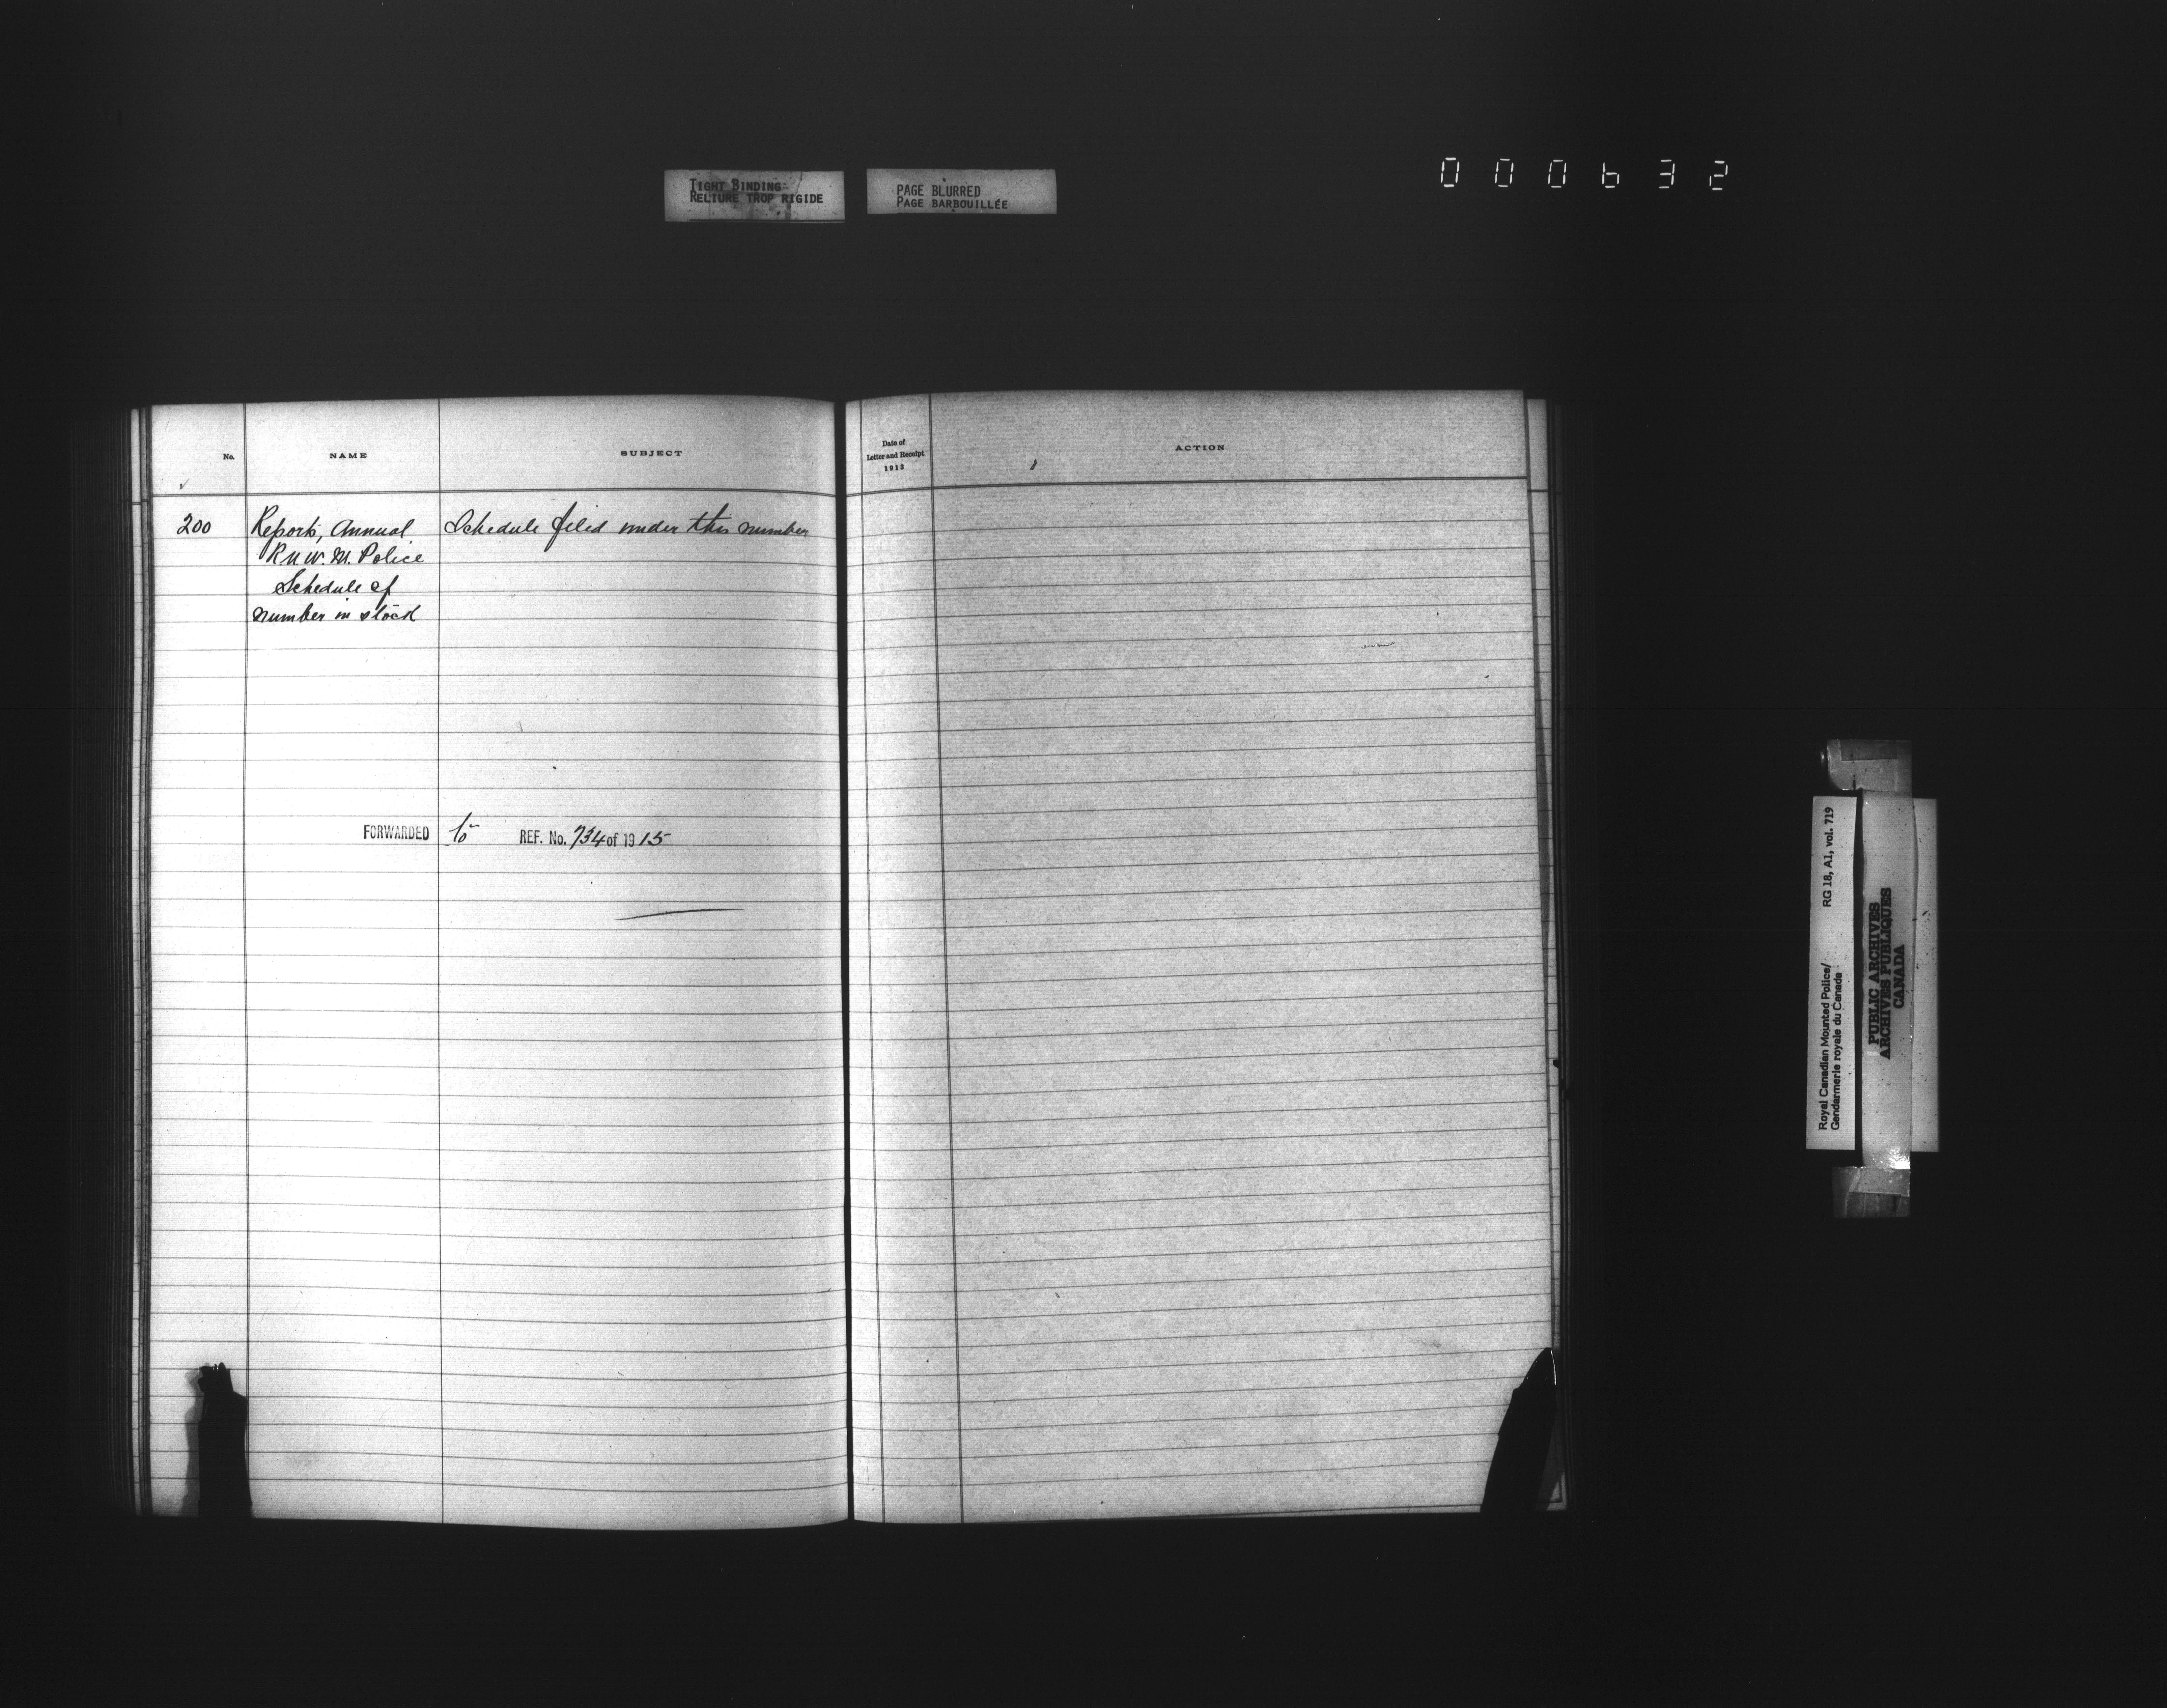 TIGHT BINDING
RELIURE TROP RIGIDE
PAGE BLURRED
PAGE BARBOUILLÉE
000632
No.
NAME
SUBJECT
Date of
Letter and Receipt
1913
ACTION
200
Reports, Annual
R.N.W.M. Police
Schedule of
number in stock
Schedule filed under this number
FORWARDED to REF. No. 734 of 1915
Royal Canadian Mounted Police/
Gendarmerie royale du Canada
RG 18, A1, vol. 719
PUBLIC ARCHIVES
ARCHIVES PUBLIQUES
CANADA